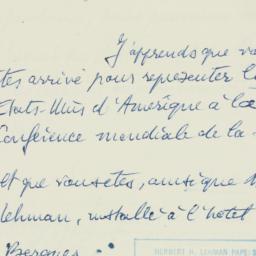 J'apprends que vo
tes arrivé pour representer le
Etats-Unis d'Amérique à la
Conférence mondiale de la
et que vousetes, ainsi que M
Lehman, installé à l'hotel
Bergues
HERBERT H. LEHMAN PAPERS